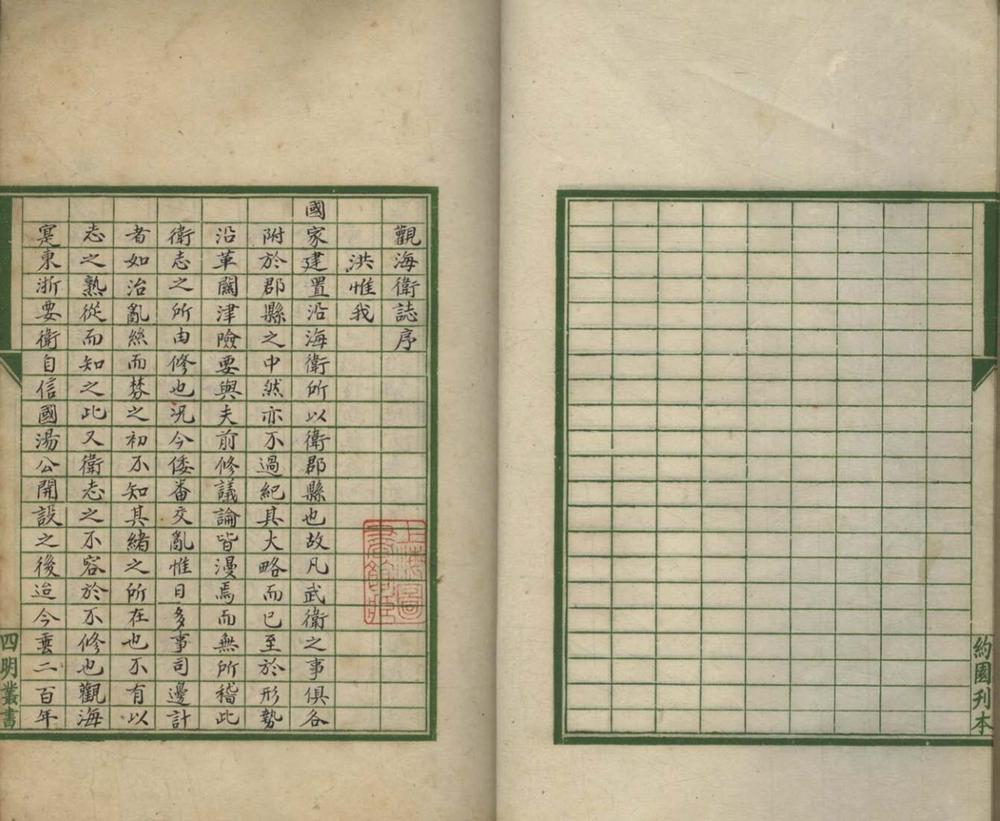 約園刊本
觀海衛誌序
洪惟我
國家建置沿海衛所以衛郡縣也故凡武衛之事俱各
附於郡縣之中然亦不過紀其大略而已至於形勢
沿革關津險要與夫前修議論皆漫焉而無所稽此
衛志之所由修也况今倭番交亂惟日多事司邊計
者如治亂絲而棼之初不知其緒之所在也不有以
志之孰從而知之此又衛志之不容於不修也觀海
寔東浙要衝自信國湯公開設之後迨今垂二百年
四明叢書
上海圖書館藏